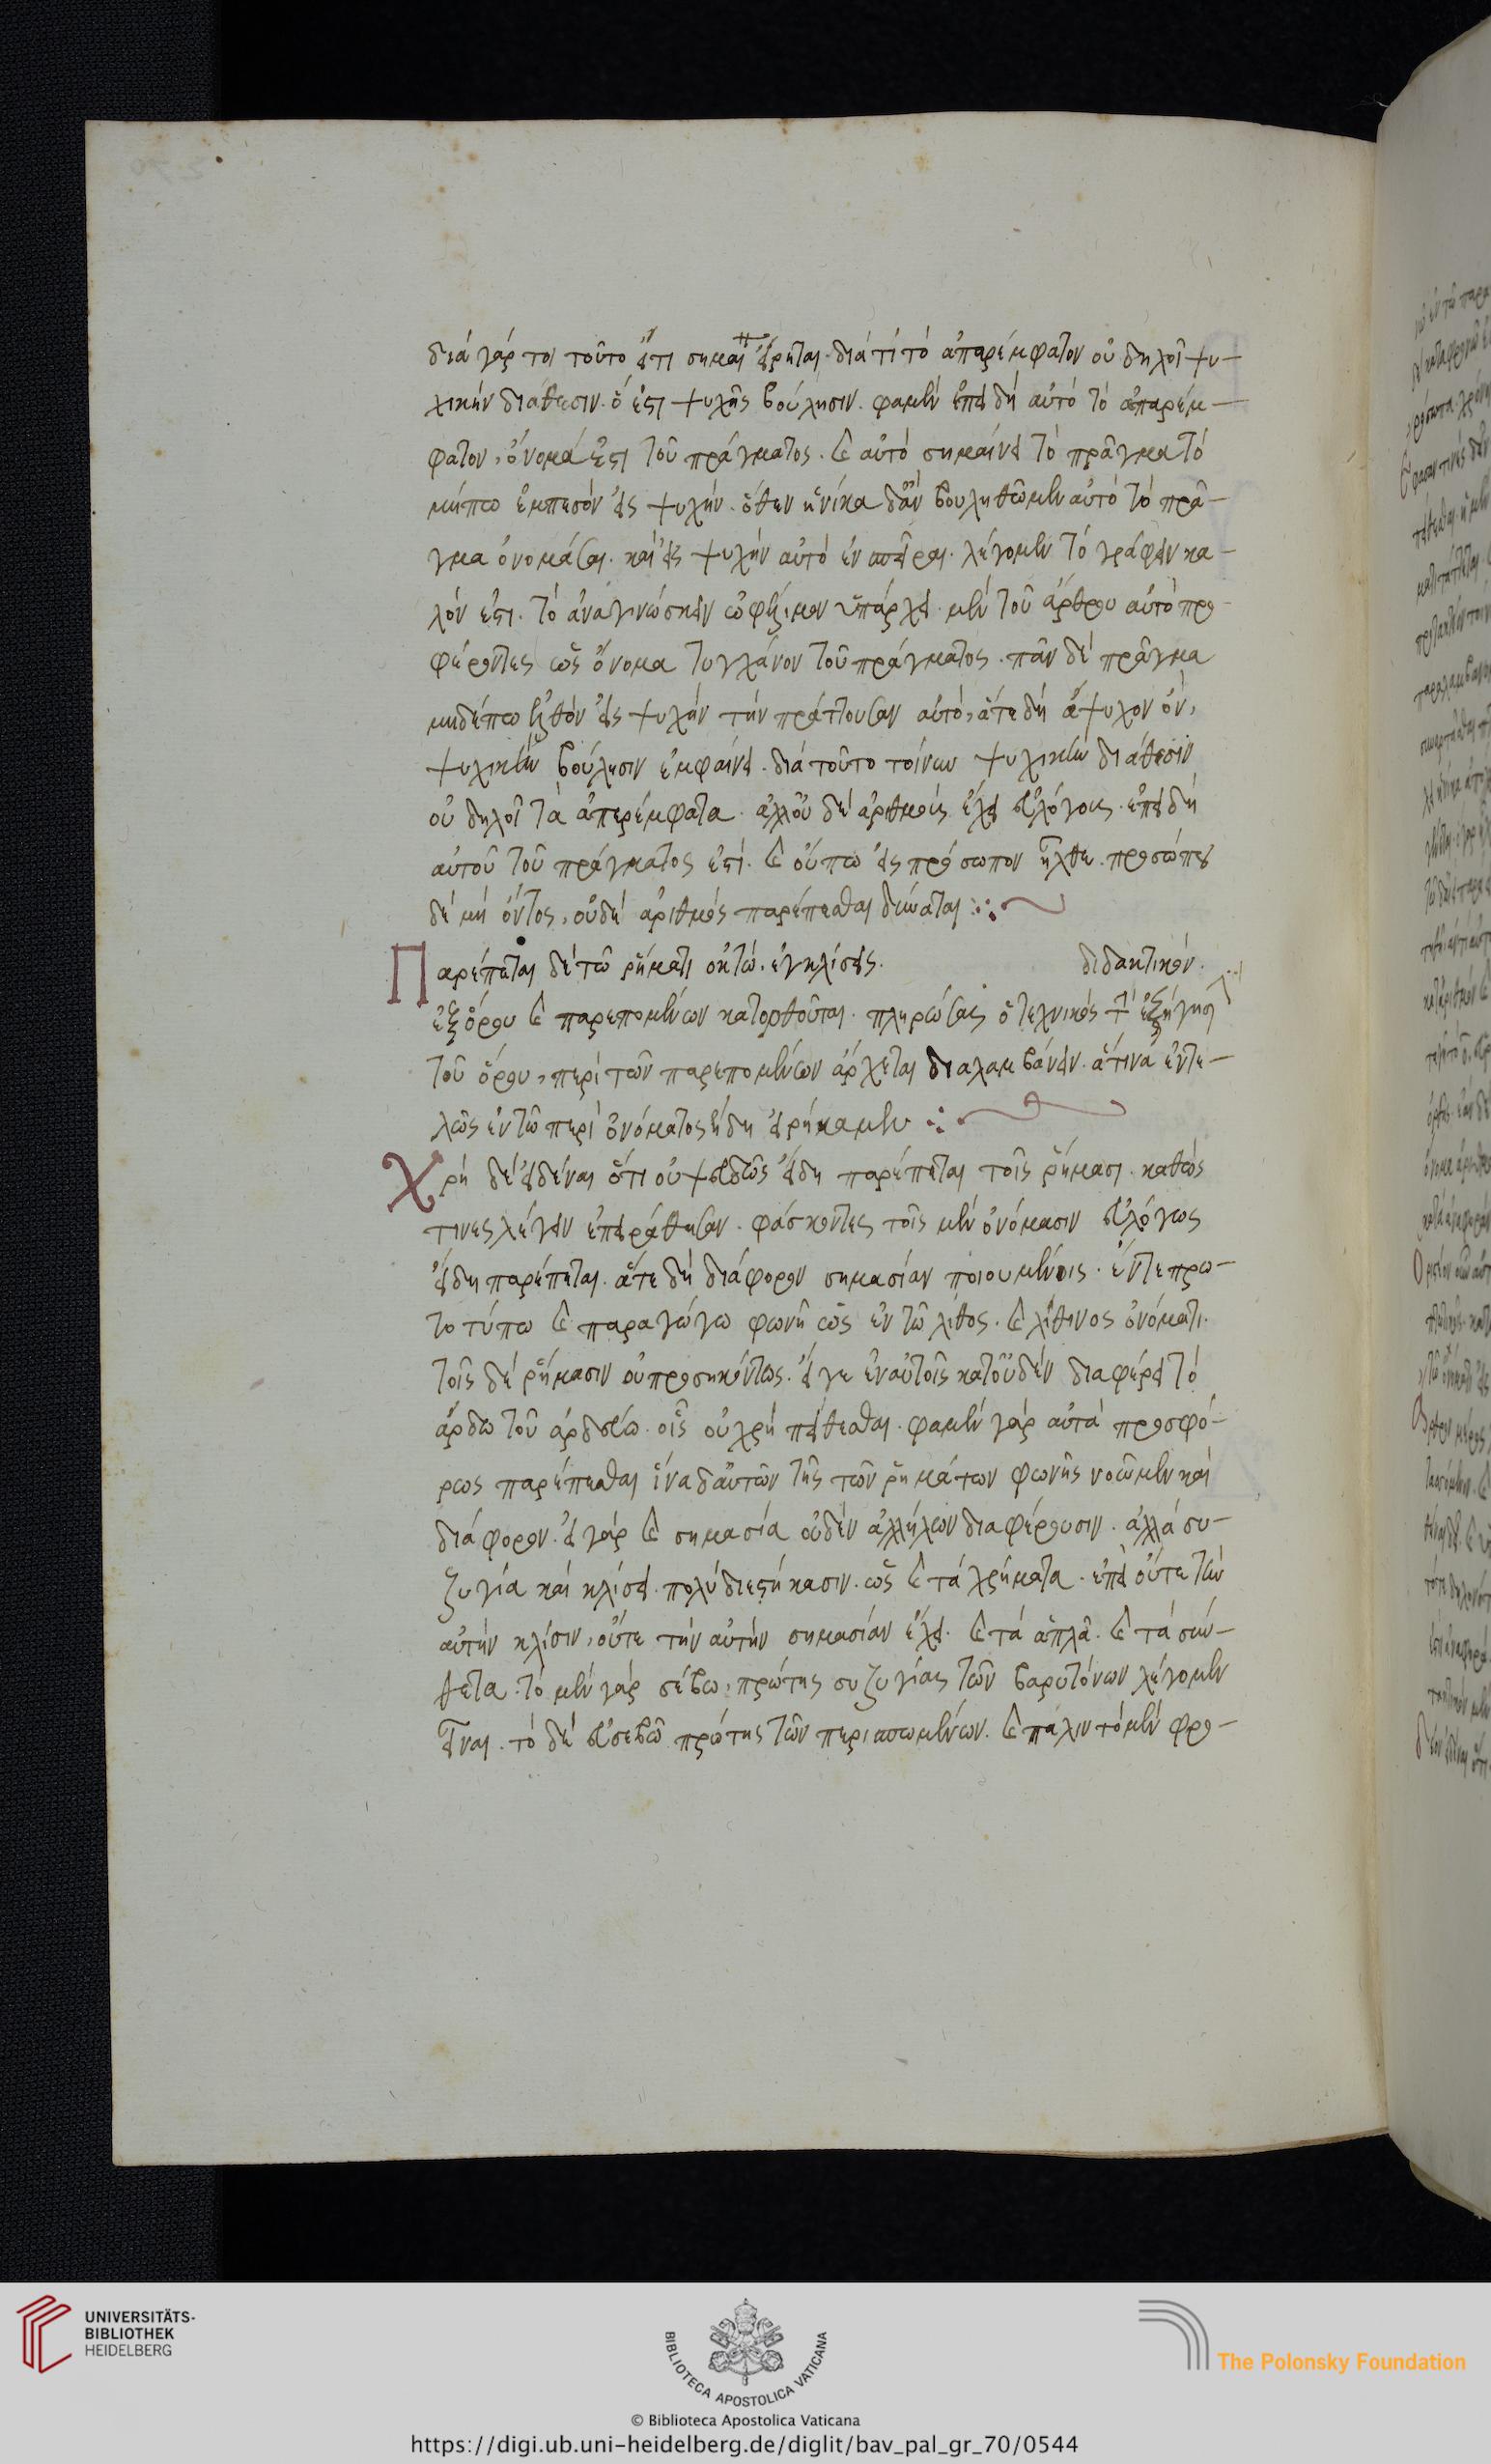 διά γάρ τοι τοῦτο ὅτι εἴρηται. διά τί τό ἀπαρέμφατον οὐ δηλοῖ ψυ-
χικήν διάθεσιν. ὅ ἐστι ψυχῆς βούλησιν. φαμέν ἐπειδή αὐτό τό ἀπαρέμ-
φατον, ὄνομά ἐστι τοῦ πράγματος. καὶ αὐτό σημαίνει τό πρᾶγμα τό
μήπω ἐμπεσόν εἰς ψυχήν. ὅθεν ἡνίκα δ' ἄν βουληθῶμεν αὐτό τό πρᾶ-
γμα ὀνομάσαι. καί εἰς ψυχήν αὐτό λέγομεν τό γράφειν κα-
λόν ἐστι. τό ἀναγινώσκειν ὠφέλιμον ὑπάρχει. μετά τοῦ ἄρθρου αὐτό προ-
φέροντες ὡς ὄνομα τυγχάνον τοῦ πράγματος. πᾶν δέ πρᾶγμα
μηδέπω ἐλθόν εἰς ψυχήν τήν πράττουσαν αὐτό, ἅτε δή ἄψυχον ὄν,
ψυχικήν βούλησιν ἐμφαίνει. διά τοῦτο τοίνυν ψυχικήν διάθεσιν
οὐ δηλοῖ τὰ ἀπερέμφατα. ἀλλ' οὐδέ ἀριθμούς ἔχει εὐλόγως. ἐπειδή
αὐτοῦ τοῦ πράγματος ἐστί. καὶ οὔπω εἰς πρόσωπον ἦλθε. προσώπου
δέ μή ὄντος, οὐδέ ἀριθμός παρέπεσθαι δύναται
Παρέπεται δέ τῶ ῥήματι ὀκτώ. ἐγκλίσεις. διδακτικόν.
ἐξ ὅρου καὶ παρεπομένων κατορθοῦται. πληρώσας ὁ τεχνικός τήν ἐξήγησιν
τοῦ ὅρου, περί τῶν παρεπομένων ἄρχεται διαλαμβάνειν. ἅτινα ἐντε-
λῶς ἐν τῶ περί ὀνόματος ἤδη εἰρήκαμεν
Χρή δέ εἰδέναι ὅτι οὐ ψευδῶς εἴδη παρέπεται τοῖς ῥήμασι. καθώς
τινες λέγειν ἐπειράθησαν. φάσκοντες τοῖς μέν ὀνόμασιν εὐλόγως
εἴδη παρέπεται. ἅτε δή διάφορον σημασίαν ποιουμένοις. ἔν τε πρω-
τοτύπω καὶ παραγώγω φωνῆ ὡς ἐν τῶ λίθος. καὶ λίθινος ὀνόματι.
τοῖς δέ ῥήμασιν οὐ προσηκόντως. εἴ γε ἐν αὐτοῖς κατ' οὐδέν διαφέρει τό
ἄρδω τοῦ ἀρδεύω. οἷς οὐ χρή πείθεσθαι. φαμέν γάρ αὐτά προσφό-
ρως παρέπεσθαι ἵνα δ' αὐτῶν τῆς τῶν ῥημάτων φωνῆς νοῶμεν καί
διάφορον. εἰ γάρ καὶ σημασία οὐδέν ἀλλήλων διαφέρουσιν. ἀλλά συ-
ζυγία καί κλίσει. πολύ διεστήκασιν. ὡς καὶ τά χρήματα. ἐπεί οὔτε τήν
αὐτήν κλίσιν, οὔτε τήν αὐτήν σημασίαν ἔχει. καὶ τά ἁπλᾶ. καὶ τά σύν-
θετα. τό μέν γάρ σέβω, πρώτης συζυγίας τῶν βαρυτόνων λέγομεν
εἶναι. τό δέ εὐσεβῶ πρώτης τῶν περισπωμένων. καὶ πάλιν τό μέν φρο-
UNIVERSITÄTS-
BIBLIOTHEK
HEIDELBERG
BIBLIOTECA APOSTOLICA VATICANA
The Polonsky Foundation
© Biblioteca Apostolica Vaticana
https://digi.ub.uni-heidelberg.de/diglit/bav_pal_gr_70/0544